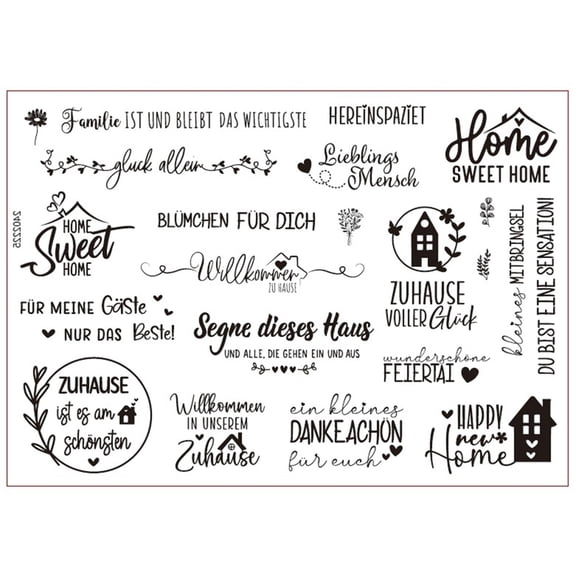 Familie IST UND BLEIBT DAS WICHTIGSTE
HEREINSPAZIET
Home
SWEET HOME
glück allein
Lieblings
Mensch
HOME
Sweet
HOME
BLÜMCHEN FÜR DICH
Willkommen
ZU HAUSE
ZUHAUSE
VOLLER Glück
kleines MITBRINGSEL
DU BIST EINE SENSATION!
FÜR MEINE Gäste
NUR DAS Beste!
Segne dieses Haus
UND ALLE, DIE GEHEN EIN UND AUS
wunderschöne
FEIERTAI
ZUHAUSE
ist es am
schönsten
Willkommen
IN UNSEREM
Zuhause
ein kleines
DANKE.ACHÖN
für euch
HAPPY
new
Home